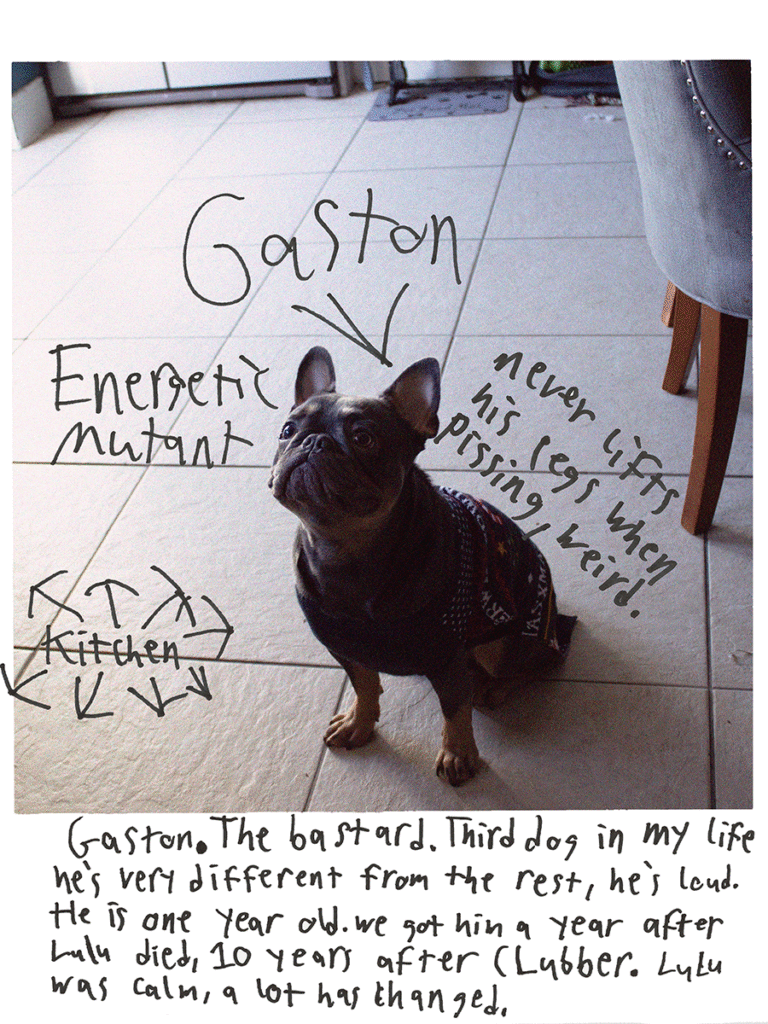 Gaston
Energetic
mutant
never lifts
his legs when
pissing, weird.
Kitchen
Gaston. The bastard. Third dog in my life
he's very different from the rest, he's loud.
He is one year old. we got him a year after
Lulu died, 10 years after Clubber. Lulu
was calm, a lot has changed.